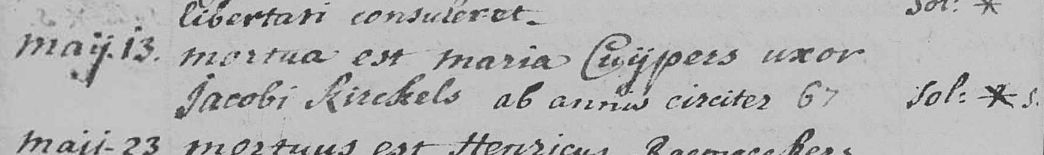 libertati consuleret. sol: *
maÿ. 13. mortua est maria Cuÿpers uxor
Jacobi Kirckels ab annis circiter 67 sol: * s.
maij-23 mortuus est Henricus